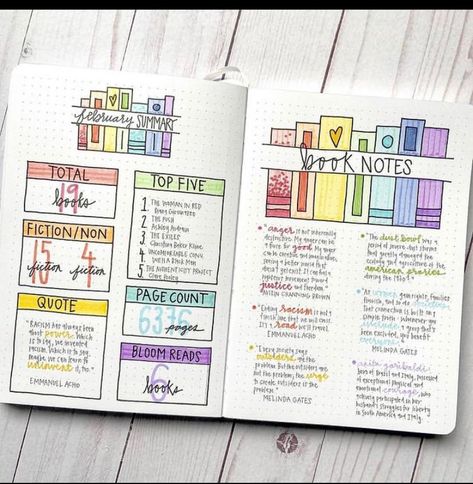 february SUMMARY
TOTAL
19
books
FICTION/NON
15 4
fiction fiction
QUOTE
"RACISM HAS ALWAYS BEEN
ABOUT power. POWER
EMMANUEL ACHO
TOP FIVE
1. THE WOMAN IN RED
2. THE PUSH
Ashley Audrain
3. THE EXILES
Christina Baker Kline
4. UNCOMFORTABLE CONV.
WITH A BLACK MAN
5. THE AUTHENTICITY PROJECT
Clare Pooley
PAGE COUNT
6376
pages
BLOOM READS
6
books
book NOTES
"anger IS NOT INHERENTLY
DESTRUCTIVE. MY ANGER CAN BE
A FORCE FOR good. MY ANGER
CAN BE CREATIVE AND IMAGINATIVE,
SEEING A BETTER WORLD THAT
DOESN'T YET EXIST. IT CAN FUEL A
RIGHTEOUS MOVEMENT TOWARD
justice AND FREEDOM."
AUSTIN CHANNING BROWN
"Ending racism IS NOT A
FINISH LINE THAT WE WILL CROSS.
IT'S A road WE'LL TRAVEL."
EMMANUEL ACHO
"Every society SAYS
outsiders ARE THE
PROBLEM. BUT THE OUTSIDERS ARE
NOT THE PROBLEM; THE urge
TO CREATE OUTSIDERS IS THE
PROBLEM."
MELINDA GATES
the dust bowl WAS A
PERIOD OF SEVERE DUST STORMS
THAT GREATLY DAMAGED THE
ECOLOGY AND AGRICULTURE OF THE
american prairies
DURING THE 1930s.
"As women GAIN RIGHTS, FAMILIES
FLOURISH, AND SO DO societies.
THAT CONNECTION IS BUILT ON A
SIMPLE TRUTH: WHENEVER YOU
include A GROUP THAT'S
BEEN EXCLUDED, YOU BENEFIT
everyone."
MELINDA GATES
anita garibaldi:
courage, WHO
HUSBAND'S STRUGGLES FOR LIBERTY
IN SOUTH AMERICA AND ITALY.